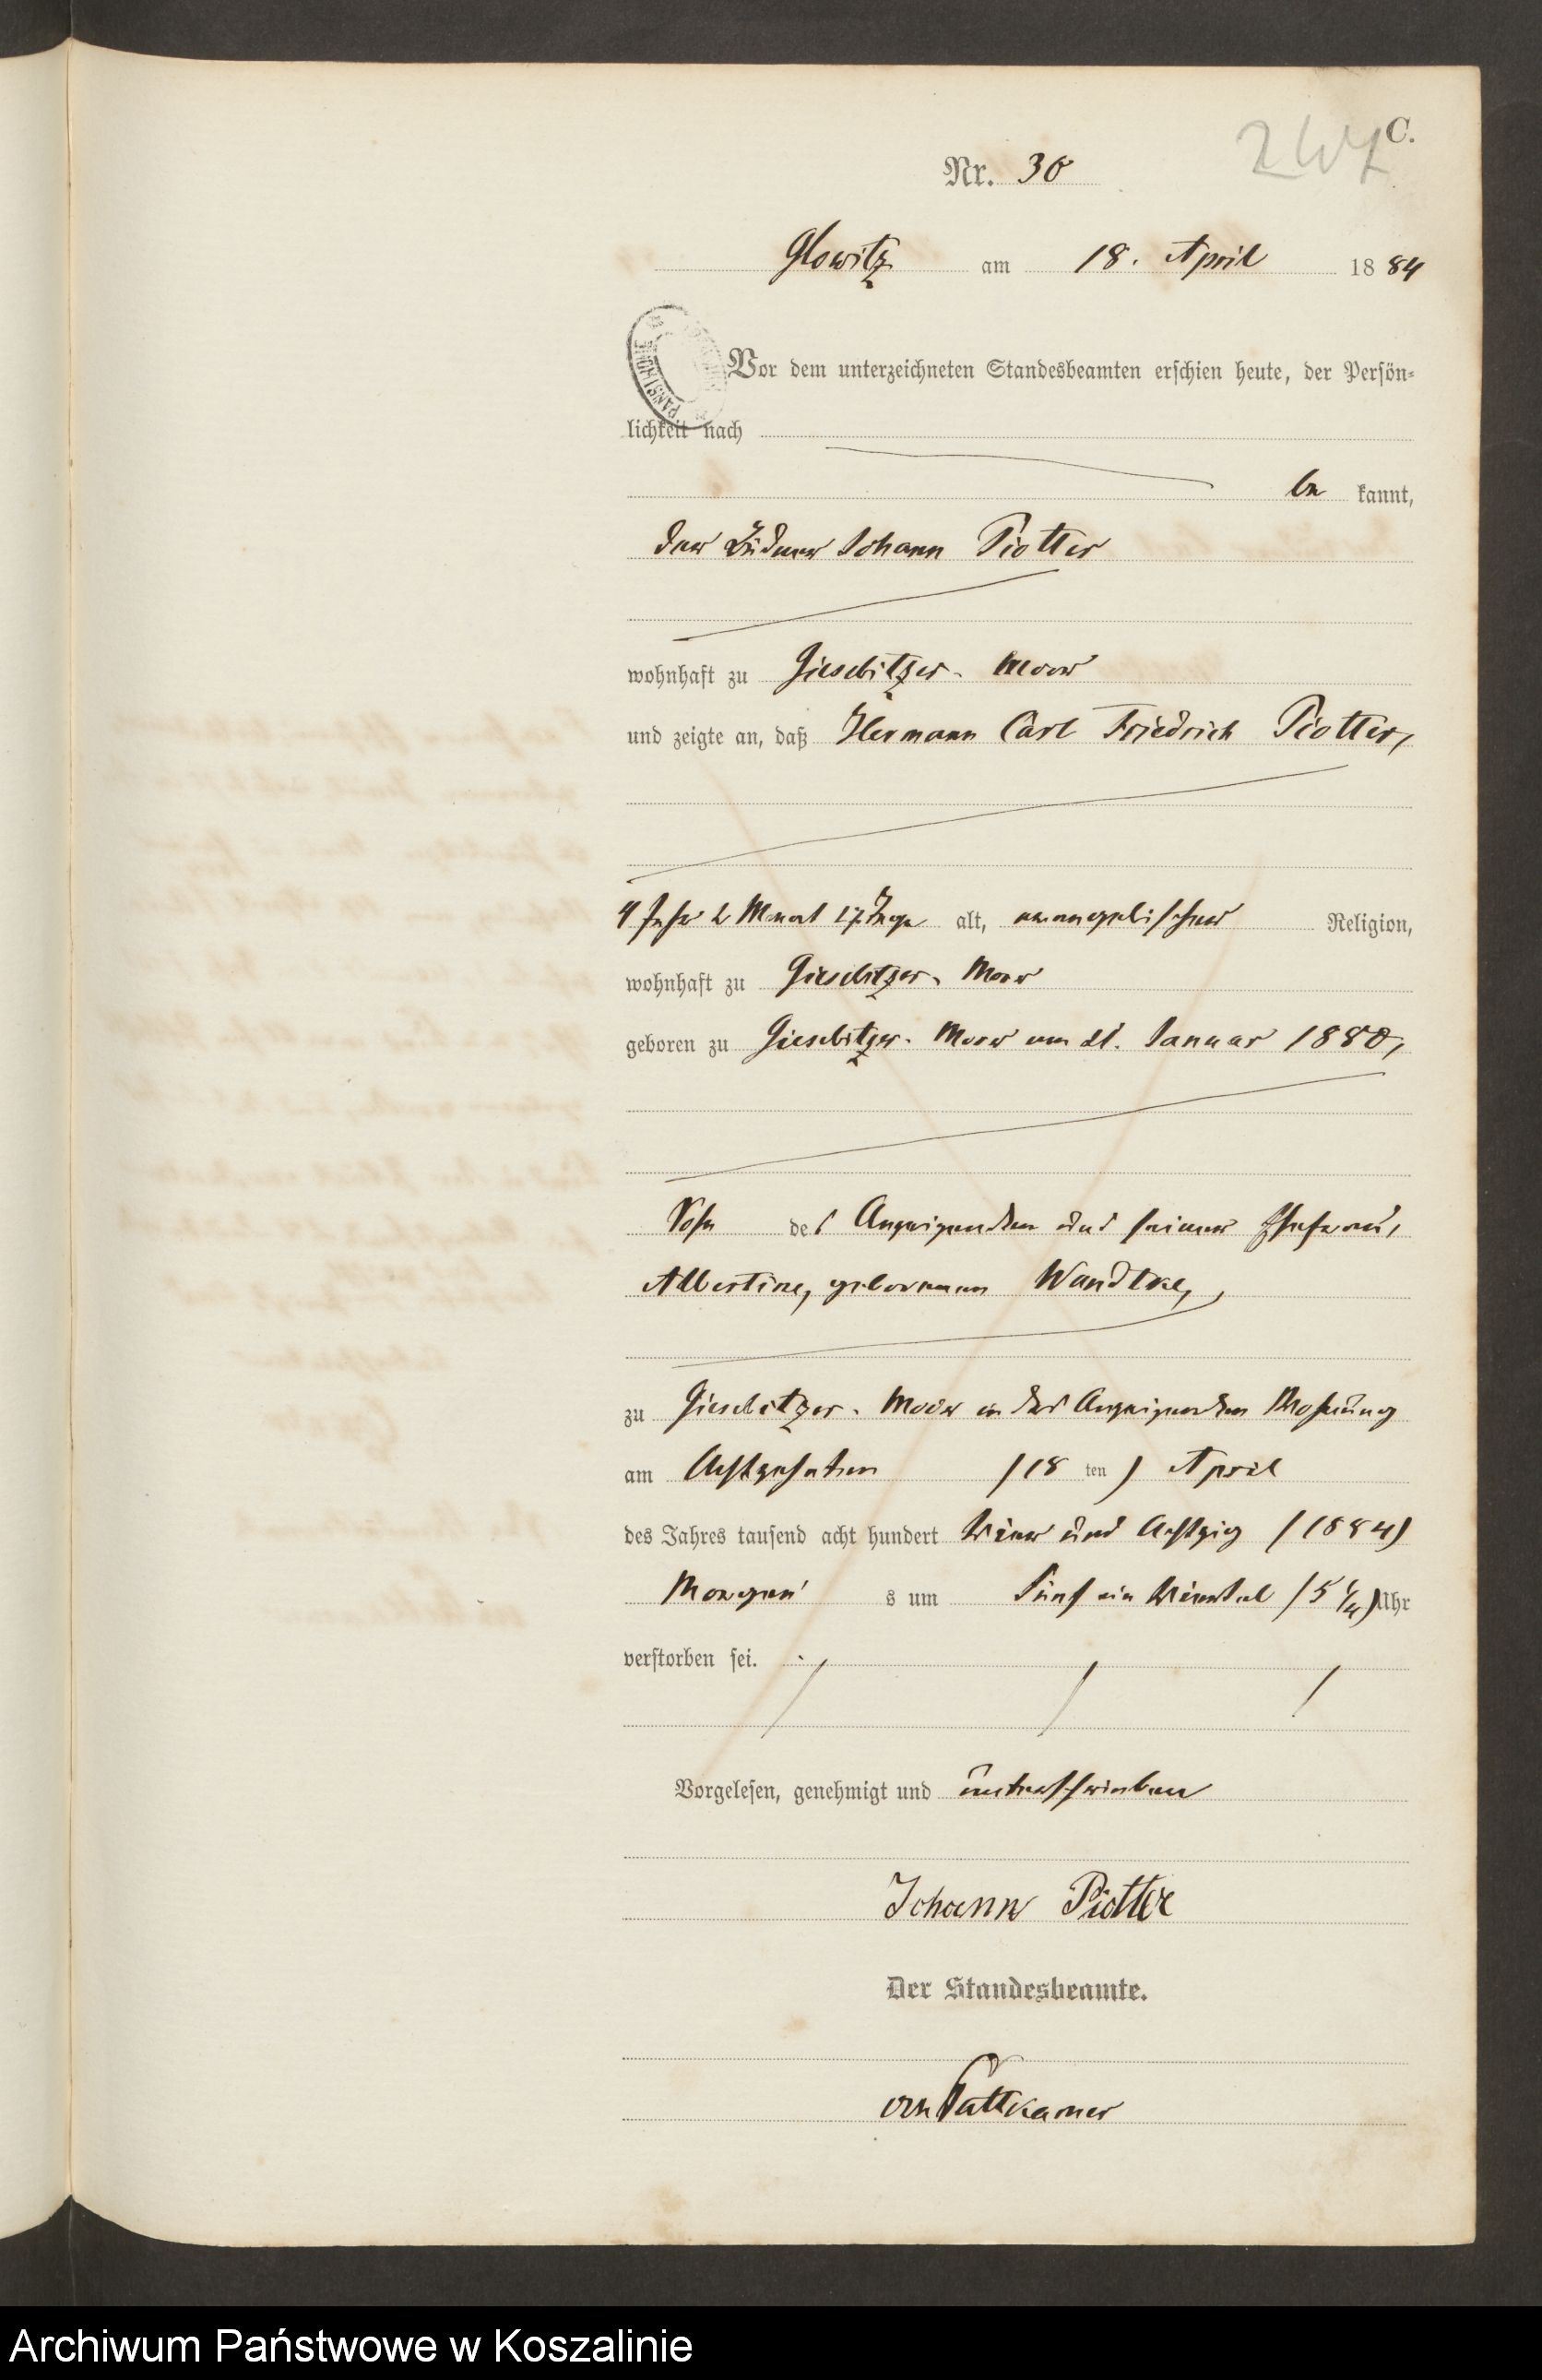 C.
247
Nr. 30
Glowitz am 18. April 1884
Vor dem unterzeichneten Standesbeamten erschien heute, der Persön-
lichkeit nach
be kannt,
der Büdner Johann Piotter
wohnhaft zu Giesebitzer-Moor
und zeigte an, daß Hermann Carl Friedrich Piotter,
4 Jahr 2 Monat 27 Tage alt, evangelischer Religion,
wohnhaft zu Giesebitzer-Moor
geboren zu Giesebitzer-Moor am 21. Januar 1880,
Sohn des Anzeigenden und seiner Ehefrau,
Albertine, geborenen Wandtke,
zu Giesebitzer-Moor in des Anzeigenden Wohnung
am Achtzehnten (18 ten) April
des Jahres tausend acht hundert Vier und Achtzig (1884)
Morgens s um Fünf ein Viertel (5 1/4) Uhr
verstorben sei.
Vorgelesen, genehmigt und unterschrieben
Johann Piotter
Der Standesbeamte.
von Puttkamer
Archiwum Państwowe w Koszalinie